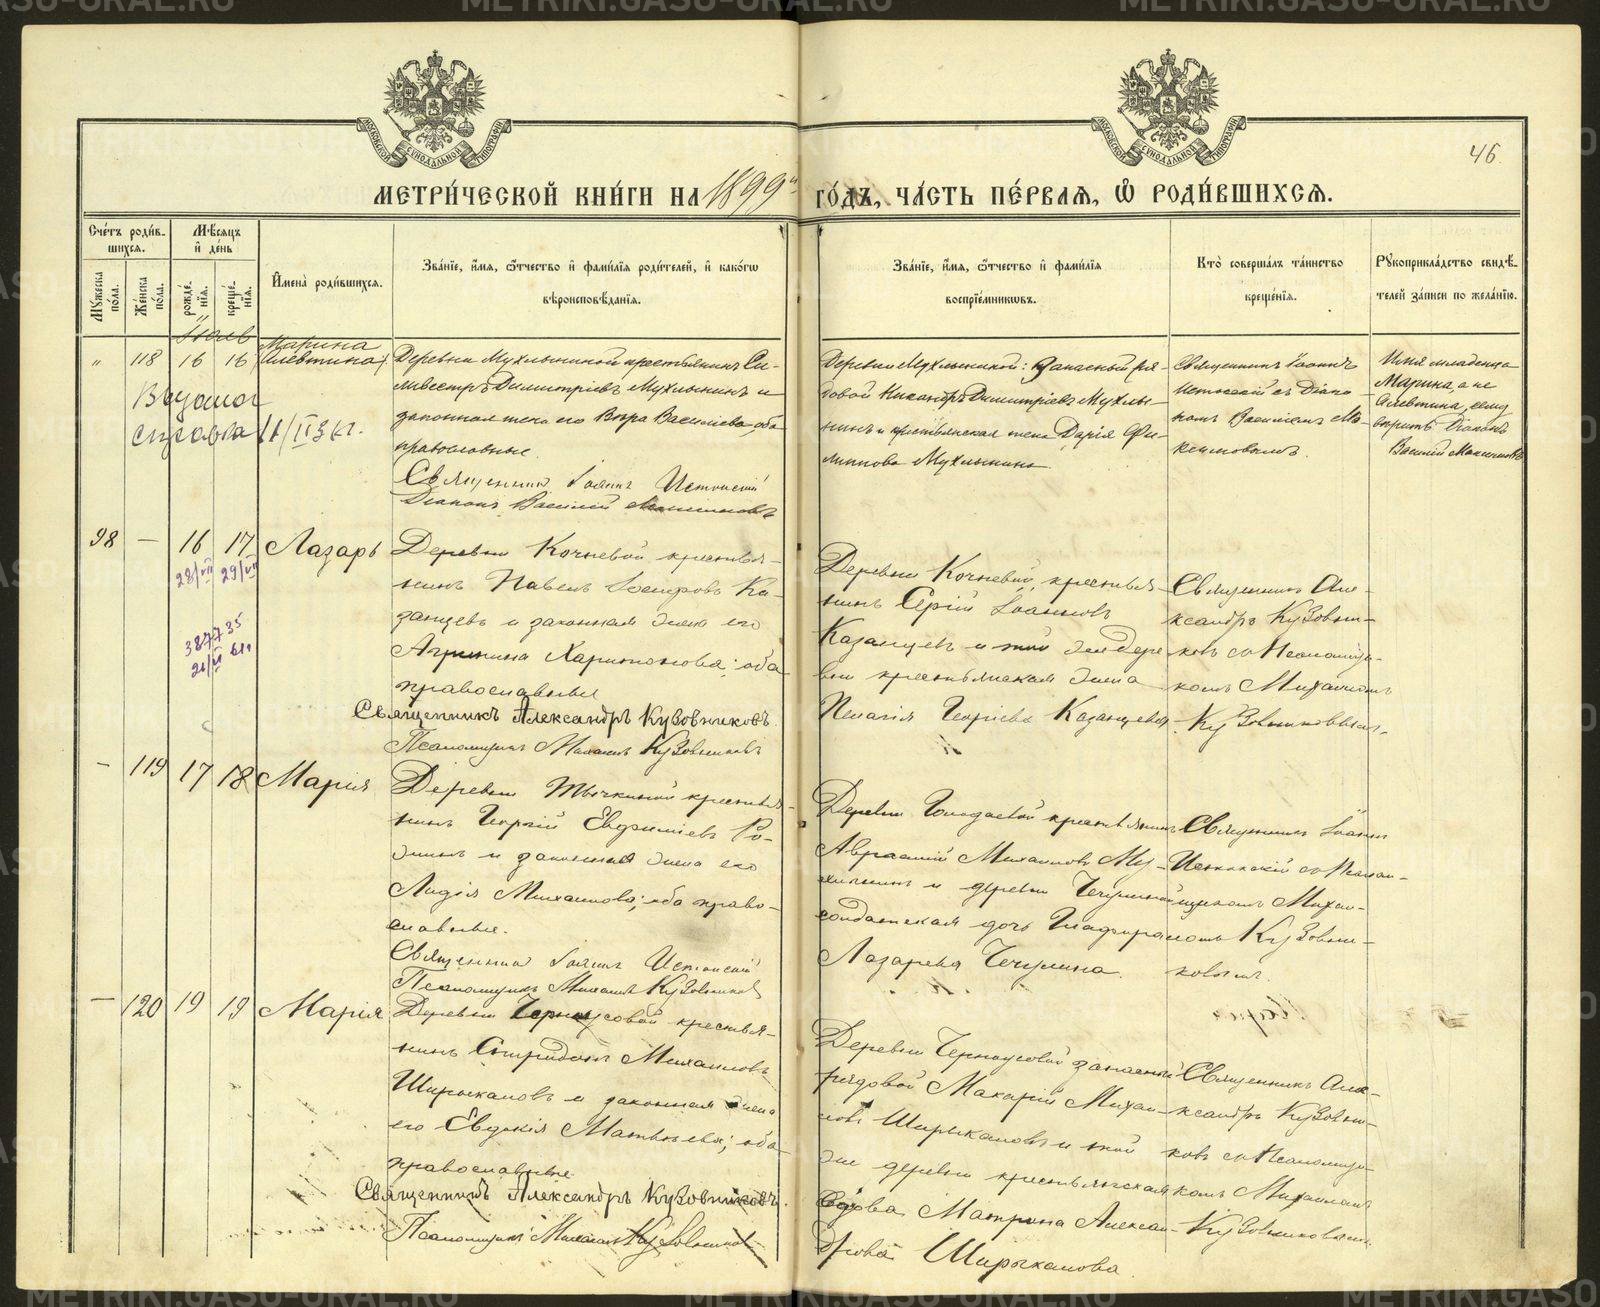 METRIKI.GASU-URAL.RU
МОСКОВСКОЙ СУНОДАЛЬНОЙ ТИПОГРАФІИ
МОСКОВСКОЙ СУНОДАЛЬНОЙ ТИПОГРАФІИ
46.
МЕТРИ́ЧЕСКОЙ КНИ́ГИ НА 1899й ГО́ДЪ, ЧА́СТЬ ПЕ́РВАЯ, Ѡ РОДИ́ВШИХСЯ.
Сче́тъ роди́в-
шихся.
Мꙋ́жеска по́ла.
Же́нска по́ла.
Мѣ́сяцъ
и҆ де́нь
рожде́-
нїѧ.
креще́-
нїѧ.
И҆мена̀ роди́вшихся.
Зва́нїе, и҆́мѧ, ѻ҆́тчество и҆ фами́лїѧ роди́телей, и҆ како́гѡ
вѣроисповѣ́данїѧ.
Зва́нїе, и҆́мѧ, ѻ҆́тчество и҆ фами́лїѧ
воспрїе́мникѡвъ.
Кто̀ соверша́лъ та́инство
креще́нїѧ.
Рꙋкоприкла́дство свидѣ́-
телей за́писи по жела́нїю.
„ 118 16 16 Марина
(Алевтина)
Деревни Мухлыниной крестьянинъ Си-
львестръ Димитріевъ Мухлынинъ и
законная жена его Вѣра Васильева, оба
православные.
Священникъ Іоаннъ Истокскій
Діаконъ Василій
Выдана
справка 11/II
Деревни Мухлыниной: Запасный ря-
довой Никандръ Димитріевъ Мухлы-
нинъ и крестьянская жена Дарія Фи-
липпова Мухлынина
Священникъ Іоаннъ
Истокскій съ Діако-
номъ Василіемъ Ма-
ксимовымъ.
Имя младенца
Марина, а не
Алевтина,
Діаконъ
Василій
98 — 16 17 Лазарь
28/VII 29/VII
38 77 35
Деревни Кочневой крестья-
нинъ Павелъ Ка-
занцевъ и законная жена его
Агрипина Харитонова; оба
православные
Священникъ Александръ Кузовниковъ.
Псаломщикъ Михаилъ Кузовниковъ
Деревни Кочневой, крестья-
нинъ Сергій Іоанновъ
Казанцевъ и той же дере-
вни крестьянская жена
Пелагія Георгіева Казанцева
Священникъ Але-
ксандръ Кузовни-
ковъ съ Псаломщи-
комъ Михаиломъ
Кузовниковымъ.
— 119 17 18 Марія
Деревни крестья-
нинъ Георгій Евфиміевъ Ро-
жинъ и законная жена его
Лидія Михаилова; оба право-
славные.
Священникъ Іоаннъ Истокскій
Псаломщикъ Михаилъ Кузовниковъ
Деревни крестьянинъ
Авраамій Михаиловъ Му-
и деревни Чечулиной
солдатская дочь
Лазарева Чечулина.
Священникъ Іоаннъ
Истокскій съ Псалом-
щикомъ Михаи-
ломъ Кузовни-
ковымъ.
— 120 19 19 Марія
Деревни Черноусовой крестья-
нинъ Спиридонъ Михаиловъ
Ширыкаловъ и законная жена
его Евдокія Матвѣева; оба
православные
Священникъ Александръ Кузовниковъ.
Псаломщикъ Михаилъ Кузовниковъ
Деревни Черноусовой запасный
рядовой Макарій Михаи-
ловъ Ширыкаловъ и той
же деревни крестьянская
вдова Матрона Алексан-
дрова Ширыкалова.
Священникъ Але-
ксандръ Кузовни-
ковъ съ Псаломщи-
комъ Михаиломъ
Кузовниковымъ.